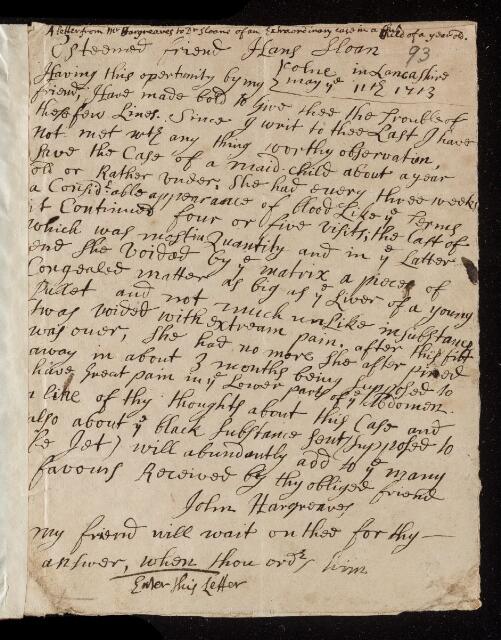 A letter from Mr Hargreaves to Dr Sloane of an Extraordinary case in a Child of a year old.
93
Esteemed friend Hans Sloan
Colne in Lancashire
may ye 11th 1713
Having this opertunity by my
friend, Have made bold to give thee the trouble of
these few Lines. Since I writ to thee Last I have
not met wth any thing worthy observation,
save the Case of a maid-child about a year
old or Rather under. She had every three weeks
a Considrable appearance of blood Like ye terms
it Continued four or five visits; the last of
which was most in Quantity and in ye Latter
end She voided by ye matrix a pieces of
Congealed matter as big as ye Liver of a young
pullet and not much unLike in substance
twas voided with extream pain. after this fitt
was over, She had no more She after pined
away in about 3 months being supposed to
have great pain in ye Lower parts of ye Abdomen.
a line of thy thoughts about this Case and
also about ye black substance sent (supposed to
be Jet) will abundantly add to ye many
favours Received by thy obliged friend
John Hargreaves
my friend will wait on thee for thy
answer, when thou ordrs him
Enter this Letter